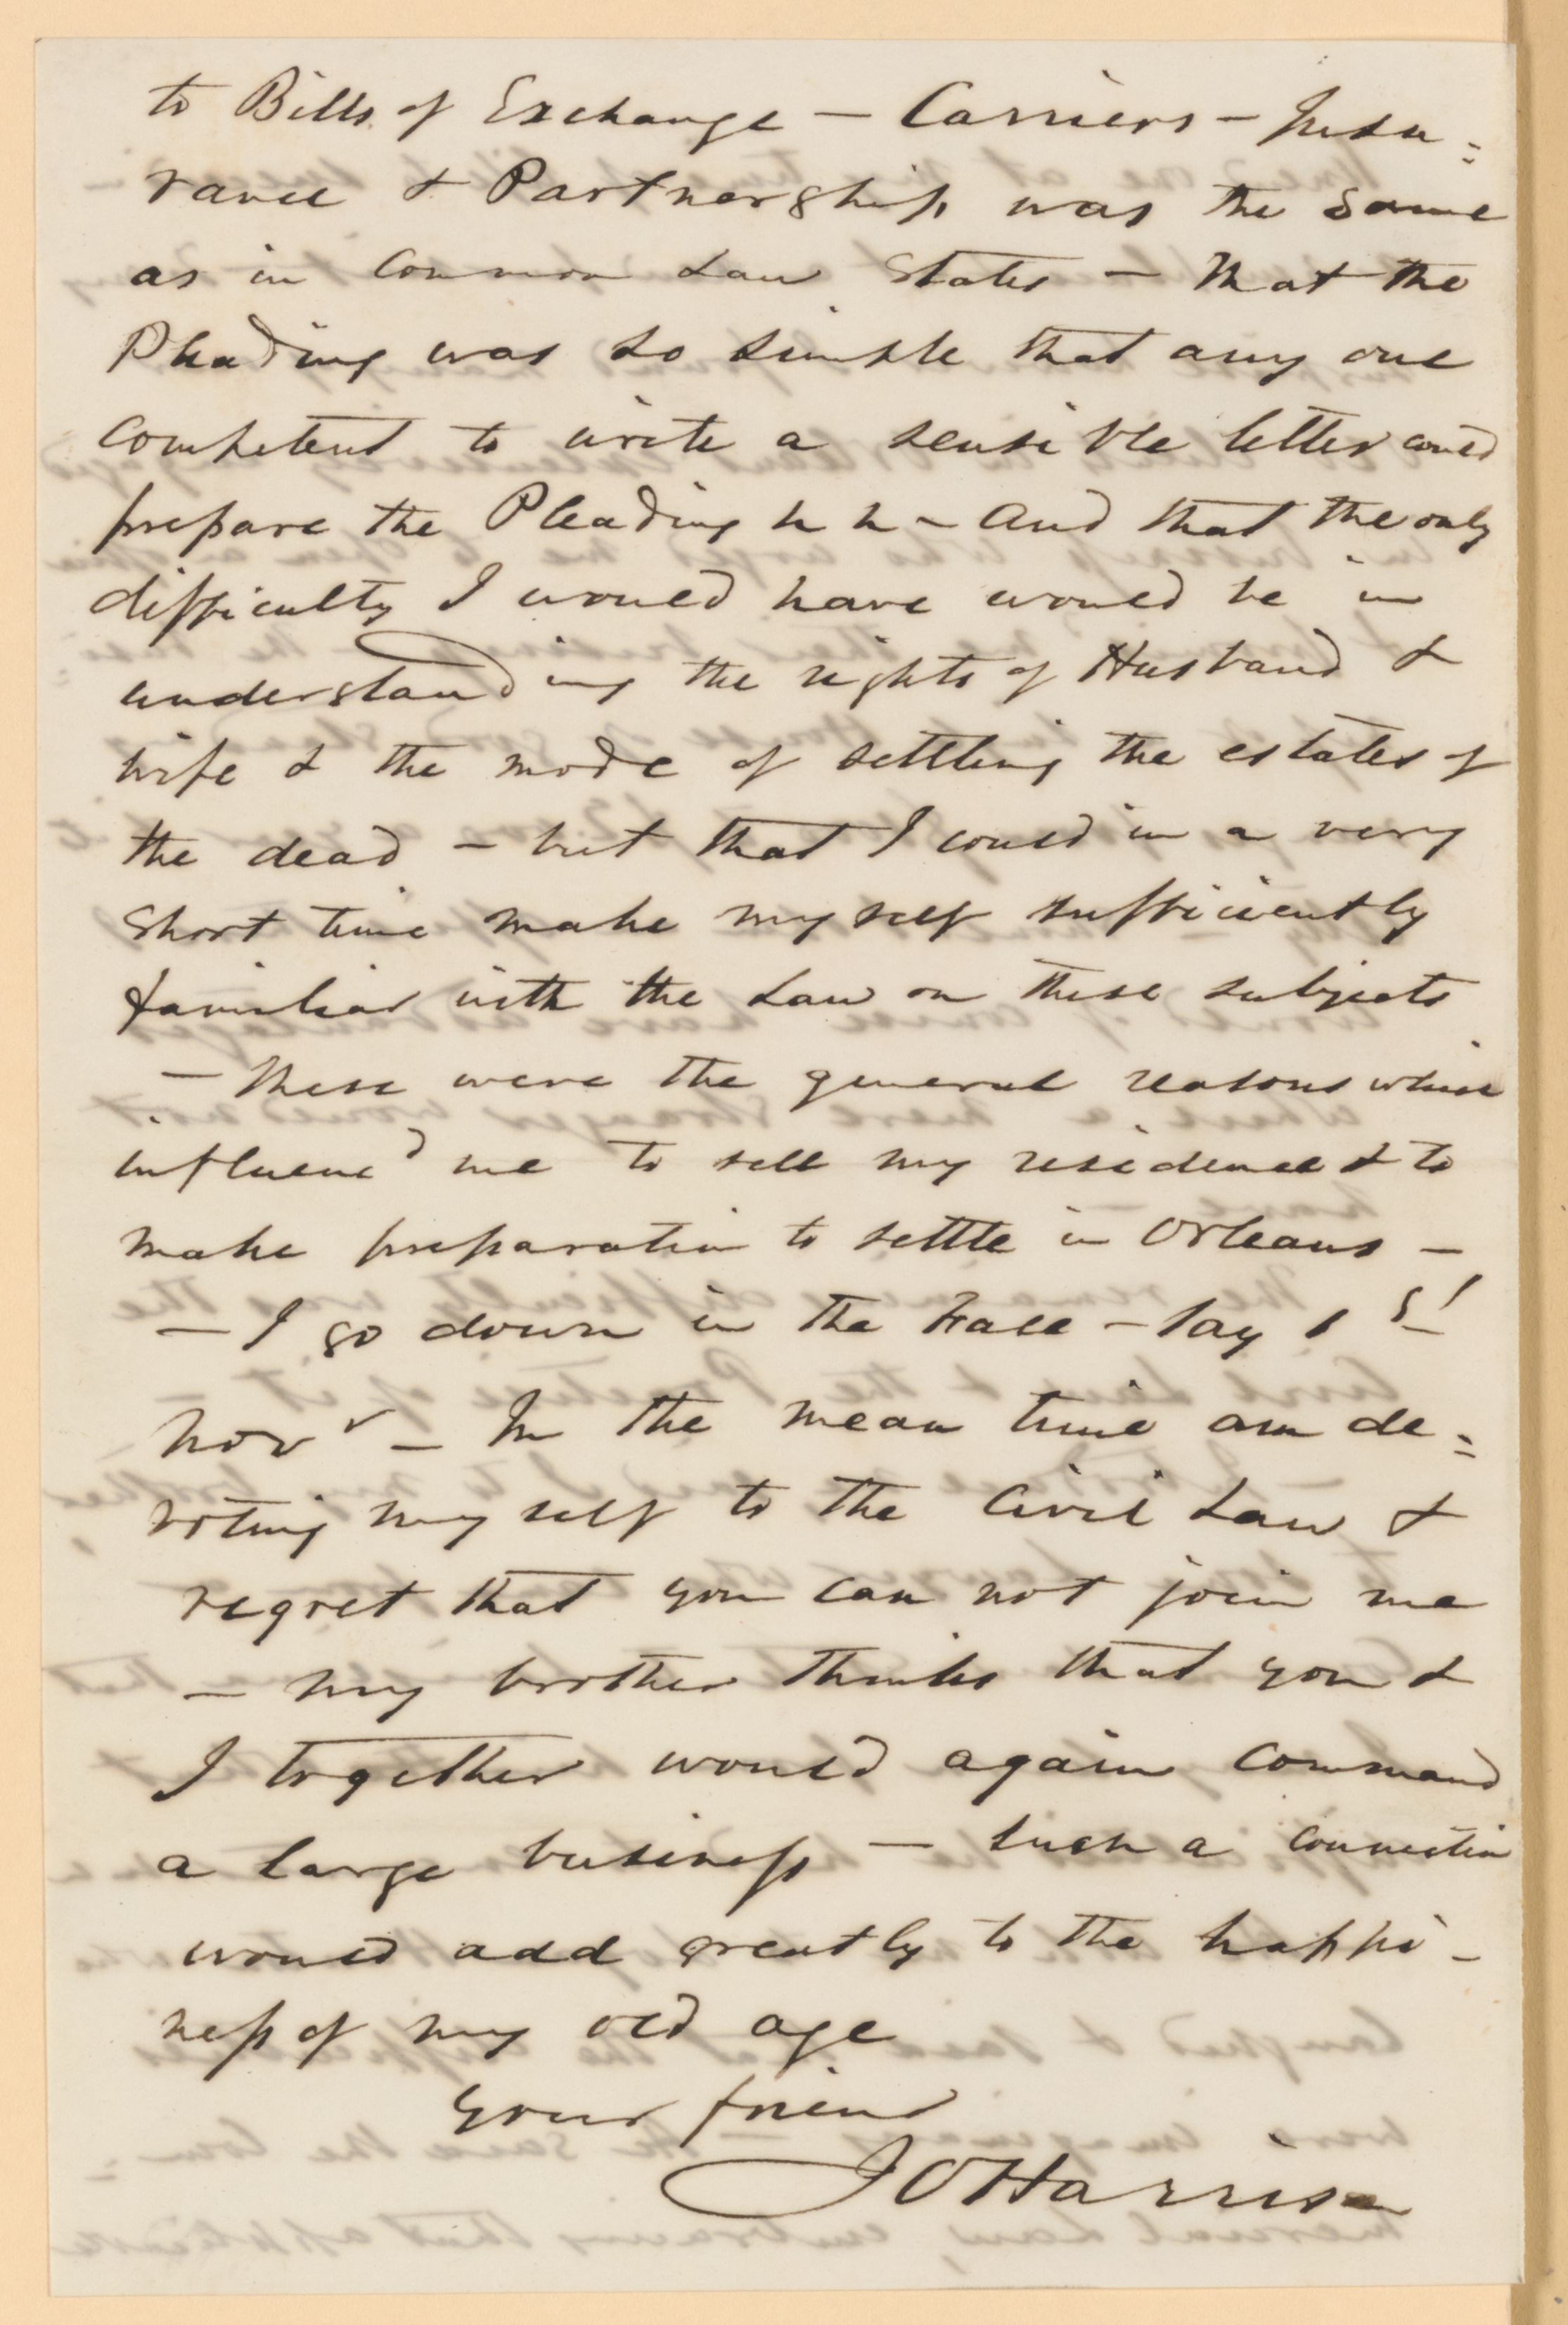 to Bills of Exchange — Carriers — Insu=
rance & Partnership was the same
as in Common Law States — that the
Pleading was so simple that any one
competent to write a sensible letter could
prepare the Pleading — and that the only
difficulty I would have would be in
understanding the rights of Husband &
wife & the mode of settling the estates of
the dead — but that I could in a very
short time make myself sufficiently
familiar with the Law on these subjects
— These were the general reasons which
influenc'd me to sell my residence & to
make preparation to settle in Orleans —
— I go down in the Fall — say 1st
Novr — In the mean time am de=
voting myself to the Civil Law &
regret that you can not join me
— My brother thinks that you &
I together would again command
a large business — Such a connection
would add greatly to the happi-
ness of my old age
Your friend
J O Harrison